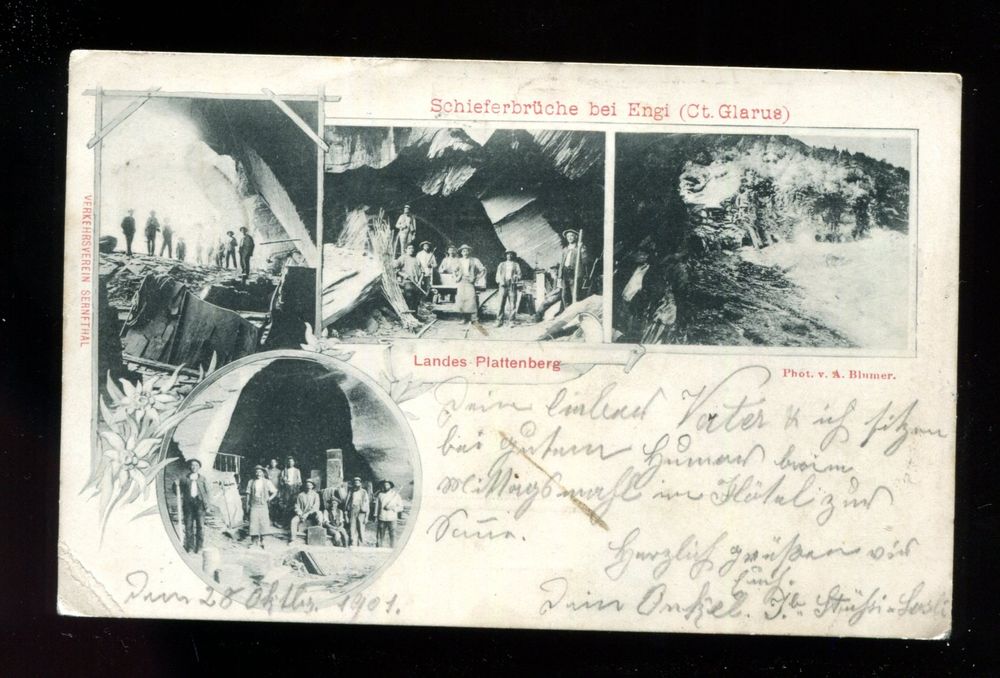 Schieferbrüche bei Engi (Ct. Glarus)
VERKEHRSVEREIN SERNFTHAL
Landes Plattenberg
Phot. v. A. Blumer.
Dein lieber Vater & ich sitzen
bei gutem Humor beim
Mittagsmahl im Hôtel zur
Sonne.
Herzlich grüßen wir
Dein Onkel. Jb Stüssi
Den 28 Oktbr. 1901.